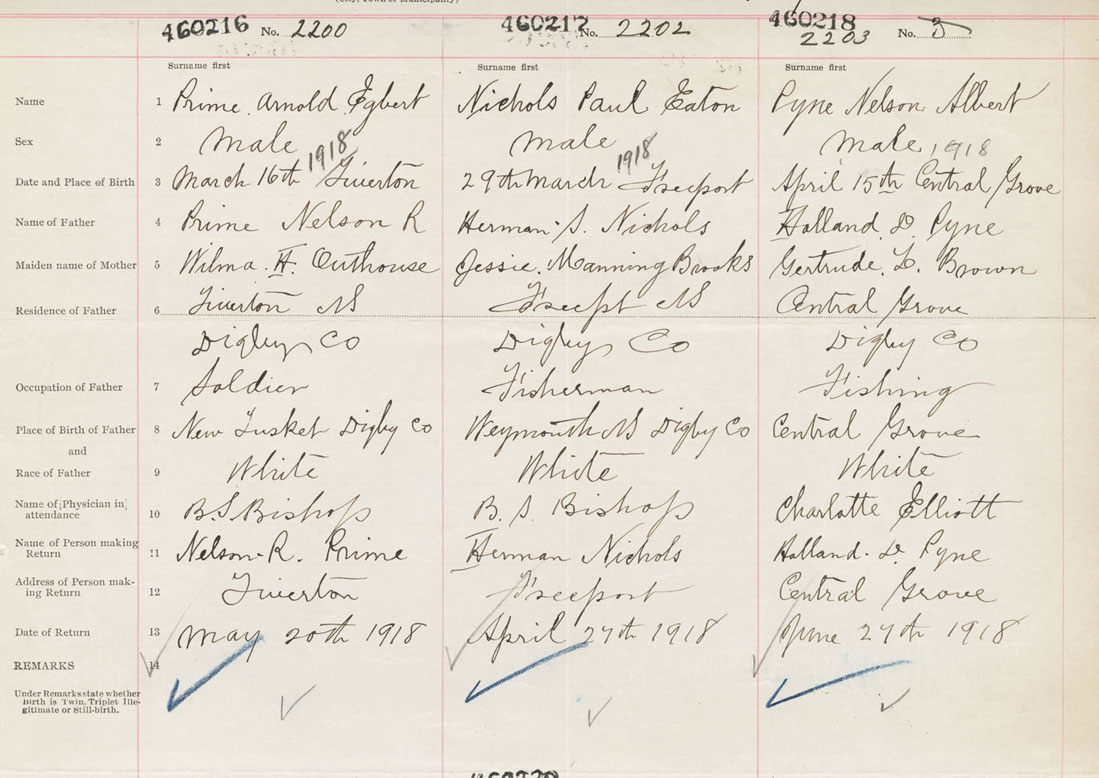 (City, Town or Municipality)
460216 No. 2200 460217 No. 2202 460218 2203 No. 3
Surname first Surname first Surname first
Name 1 Prime. Arnold Egbert Nichols Paul Eaton Pyne Nelson Albert
Sex 2 Male Male Male
1918 1918 1918
Date and Place of Birth 3 March 16th Tiverton 29th March Freeport April 15th Central Grove
Name of Father 4 Prime Nelson R Herman S. Nichols Holland. D. Pyne
Maiden name of Mother 5 Wilma. H. Outhouse Jessie. Manning Brooks Gertrude. L. Brown
Residence of Father 6 Tiverton NS Freept NS Central Grove
Digby Co Digby Co Digby Co
Occupation of Father 7 Soldier Fisherman Fishing
Place of Birth of Father 8 New Tusket Digby Co Weymouth NS Digby Co Central Grove
and
Race of Father 9 White White White
Name of Physician in attendance 10 B.S Bishop B. S. Bishop Charlotte Elliott
Name of Person making Return 11 Nelson R. Prime Herman Nichols Holland. D. Pyne
Address of Person mak-ing Return 12 Tiverton Freeport Central Grove
Date of Return 13 May 20th 1918 April 27th 1918 June 27th 1918
REMARKS 14
Under Remarks state whether
Birth is Twin, Triplet Ille-
gitimate or Still-birth.